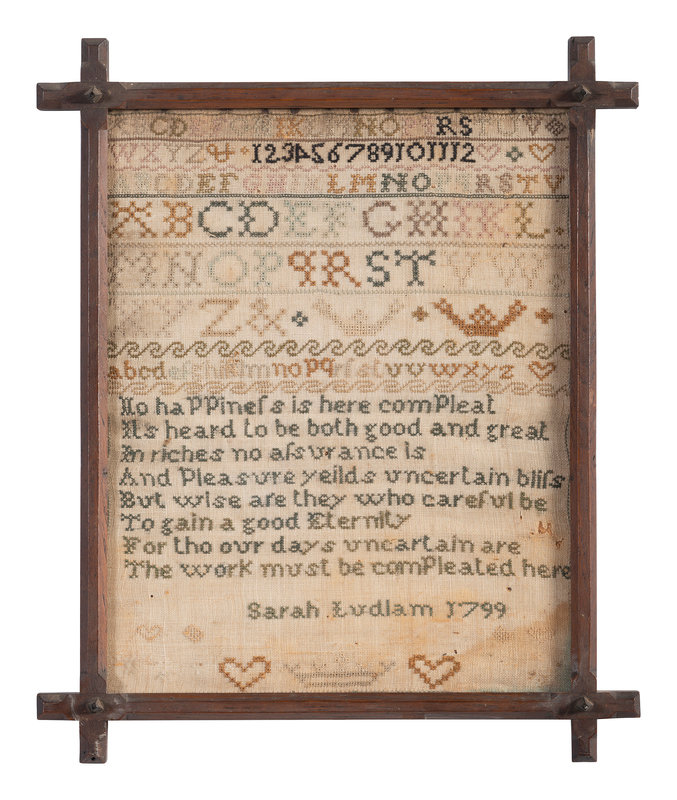 CD IK NO RS TUV
WXYZ& 123456789101112
BCDEFGHIKLMNOPQRSTV
ABCDEFGHIKL
MNOPQRST VW
XYZ&
abcdefghiklmnopqrſstuvwxyz
No haPPineſs is here comPleat
Its heard to be both good and great
In riches no aſsurance is
And Pleasure yeilds uncertain bliſs
But wise are they who careful be
To gain a good Eternity
For tho our days uncartain are
The work must be comPleated here
Sarah Ludlam 1799